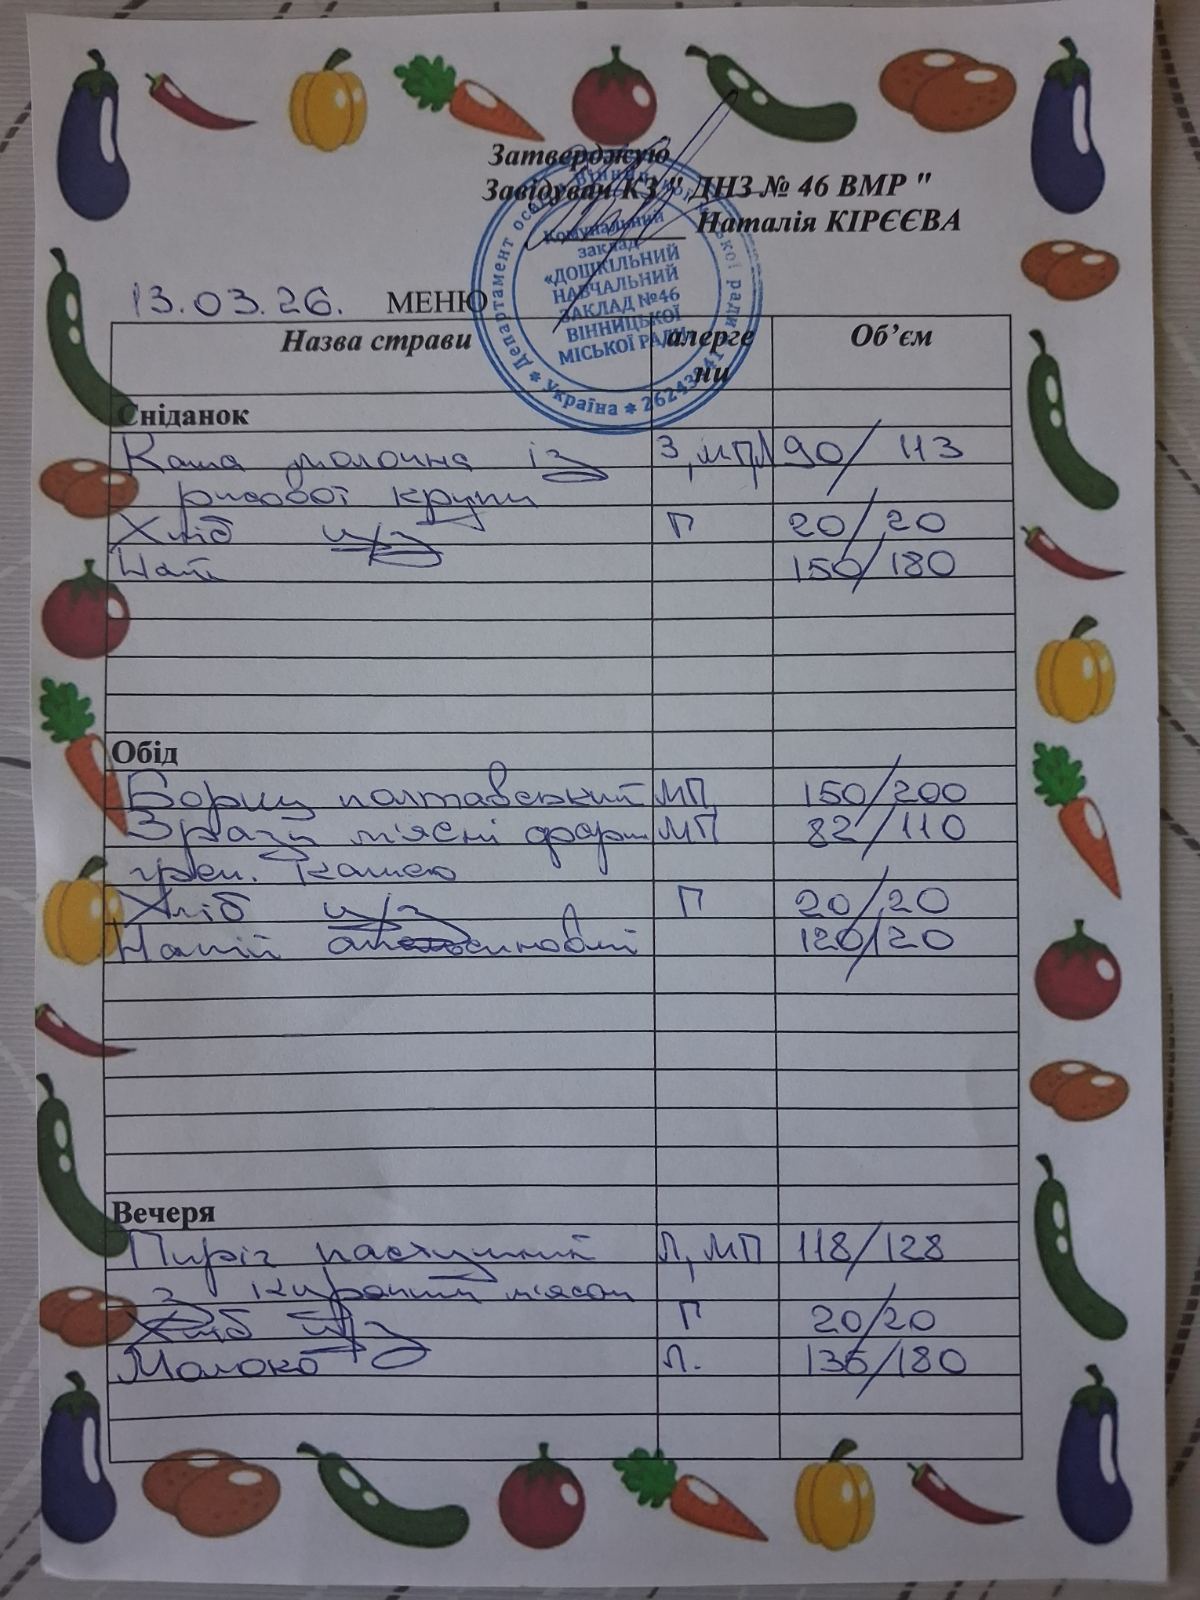 Затверджую
Завідувач КЗ " ДНЗ № 46 ВМР "
Наталія КІРЄЄВА
Комунальний
заклад
«ДОШКІЛЬНИЙ
НАВЧАЛЬНИЙ
ЗАКЛАД №46
ВІННИЦЬКОЇ
МІСЬКОЇ РАДИ»
Департамент освіти Вінницької міської ради
* Україна *
13.03.26. МЕНЮ
Назва страви алерге Об’єм
ни
Сніданок
Каша молочна із З, МП, Л 90/113
рисової крупи
Хліб ц/з Г 20/20
Чай 150/180
Обід
Борщ полтавський МП 150/200
Зрази м'ясні фарш МП 82/110
греч. кашею
Хліб ц/з Г 20/20
Напій апельсиновий 120/120
Вечеря
Пиріг пастуший Л, МП 118/128
з курячим м'ясом
Хліб ц/з Г 20/20
Молоко Л. 136/180